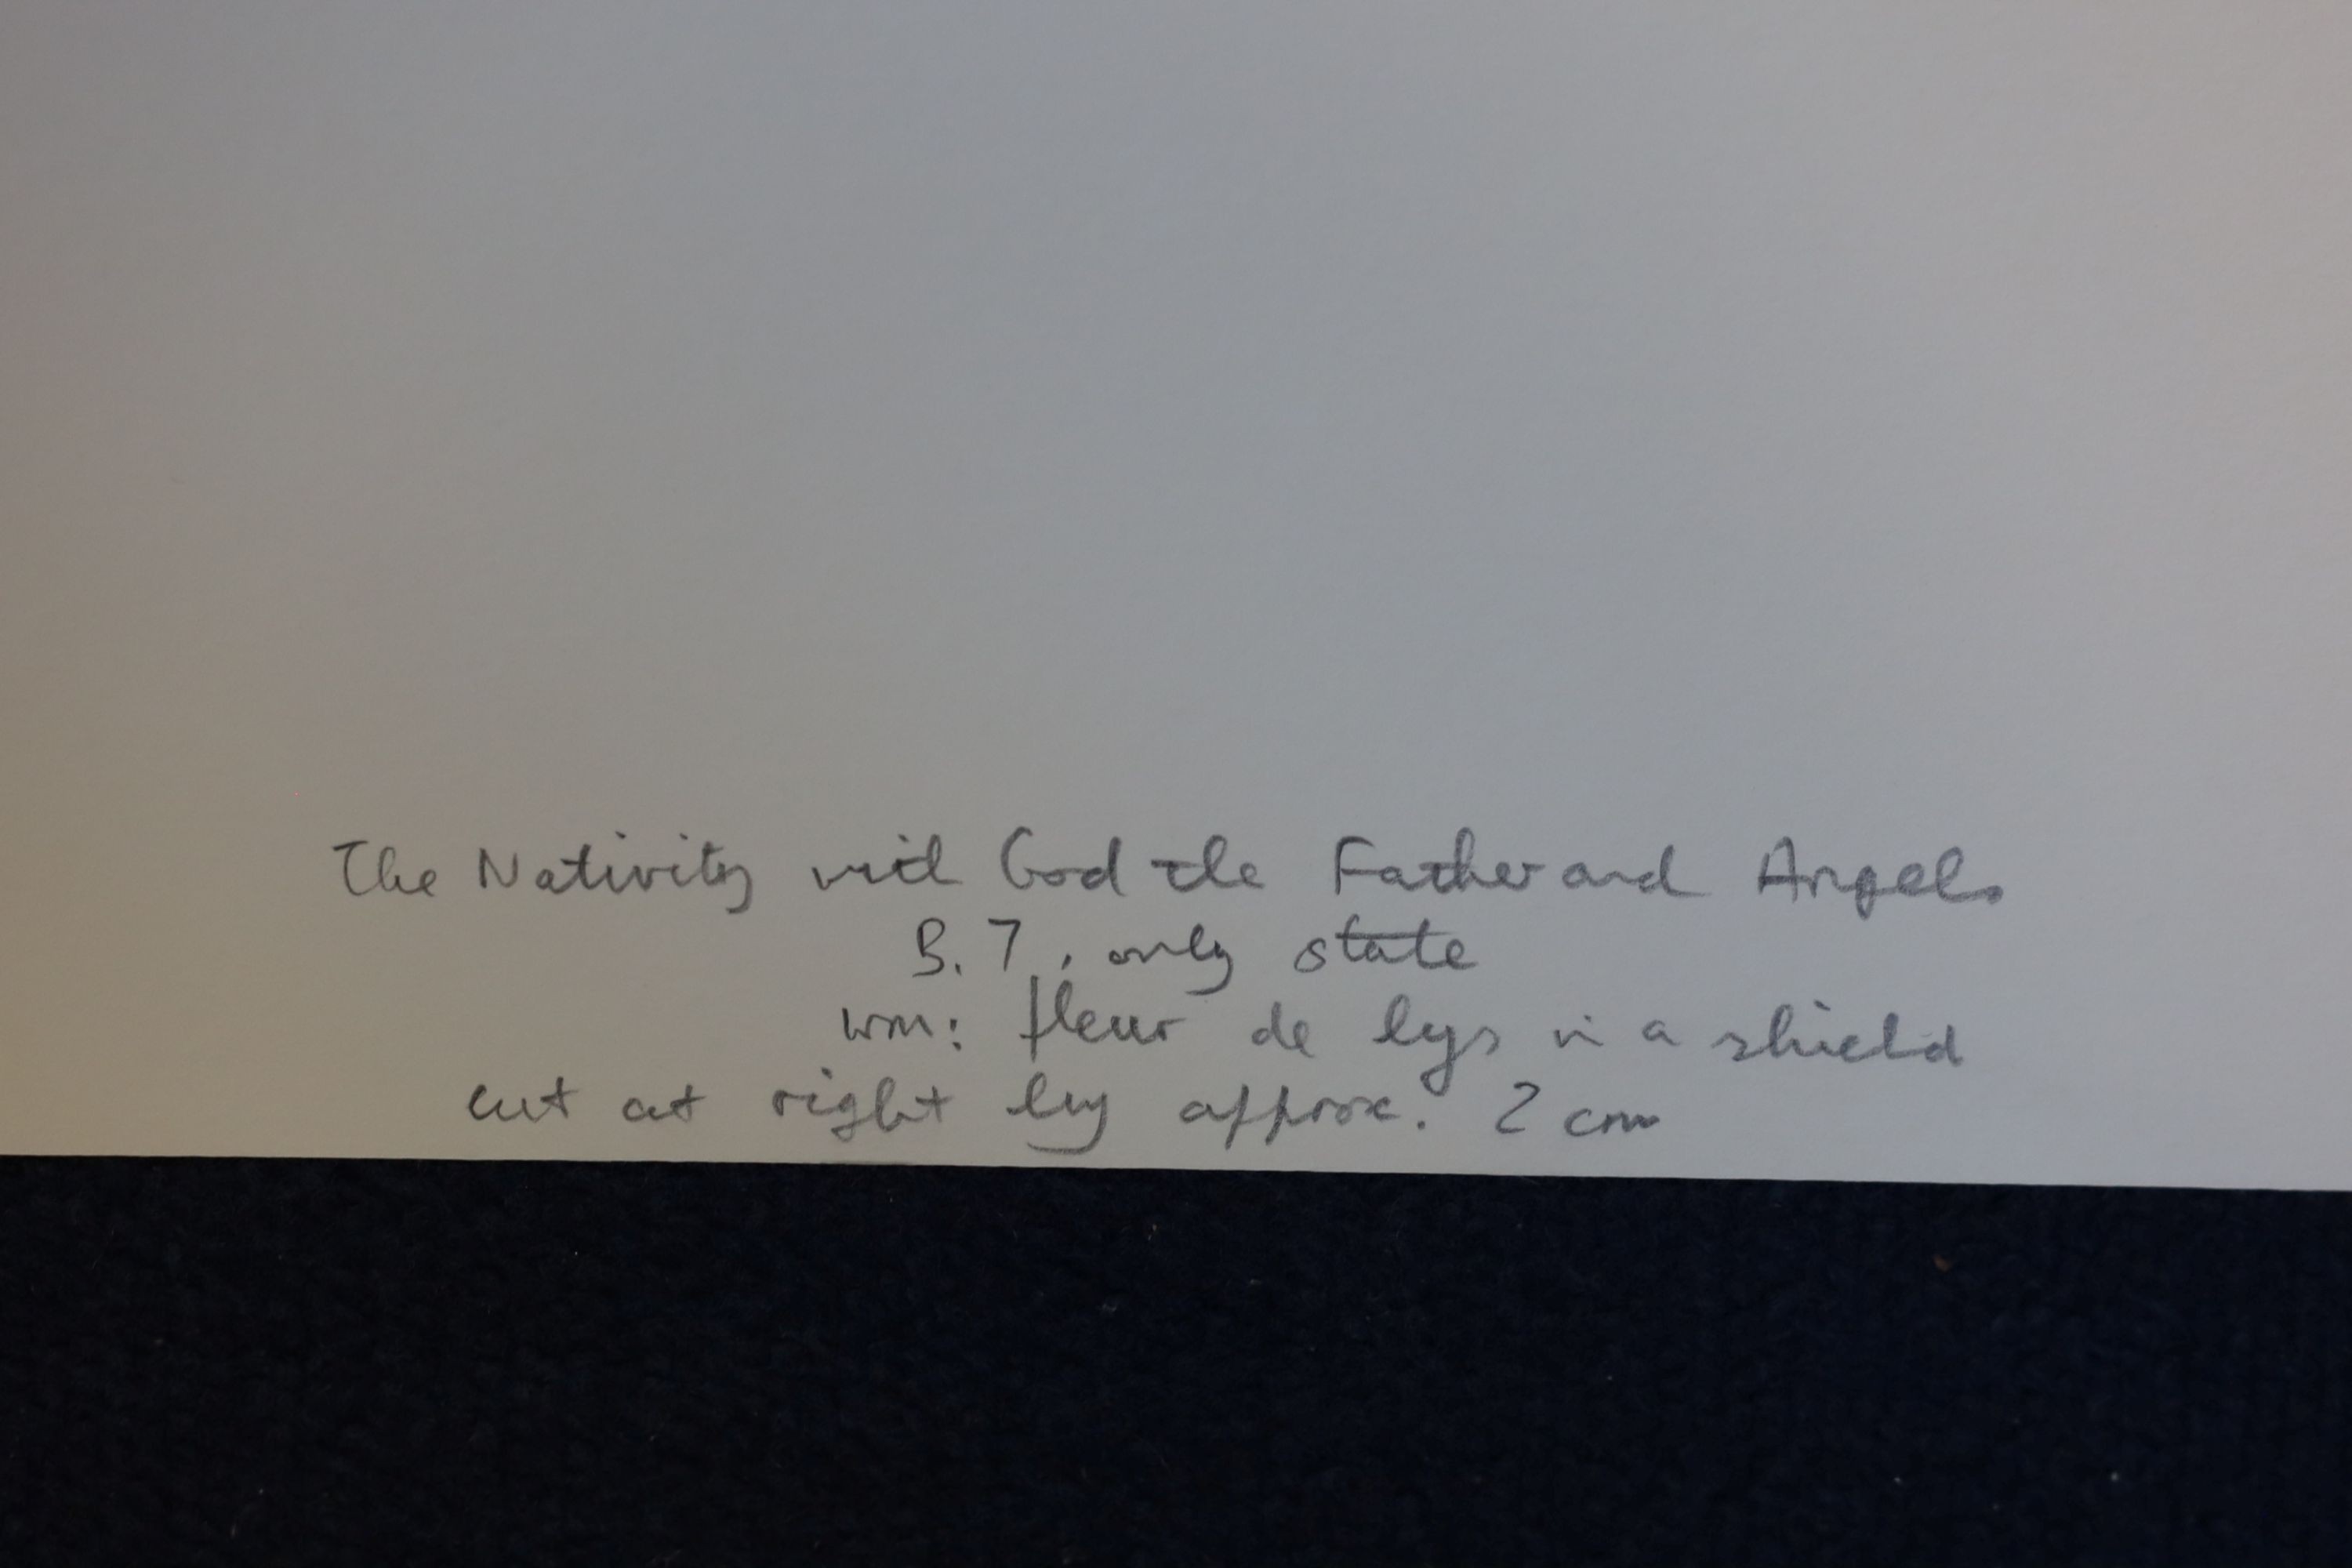 The Nativity with God the Father and Angels
B. 7, only state
wm: fleur de lys in a shield
cut at right by approx. 2 cm